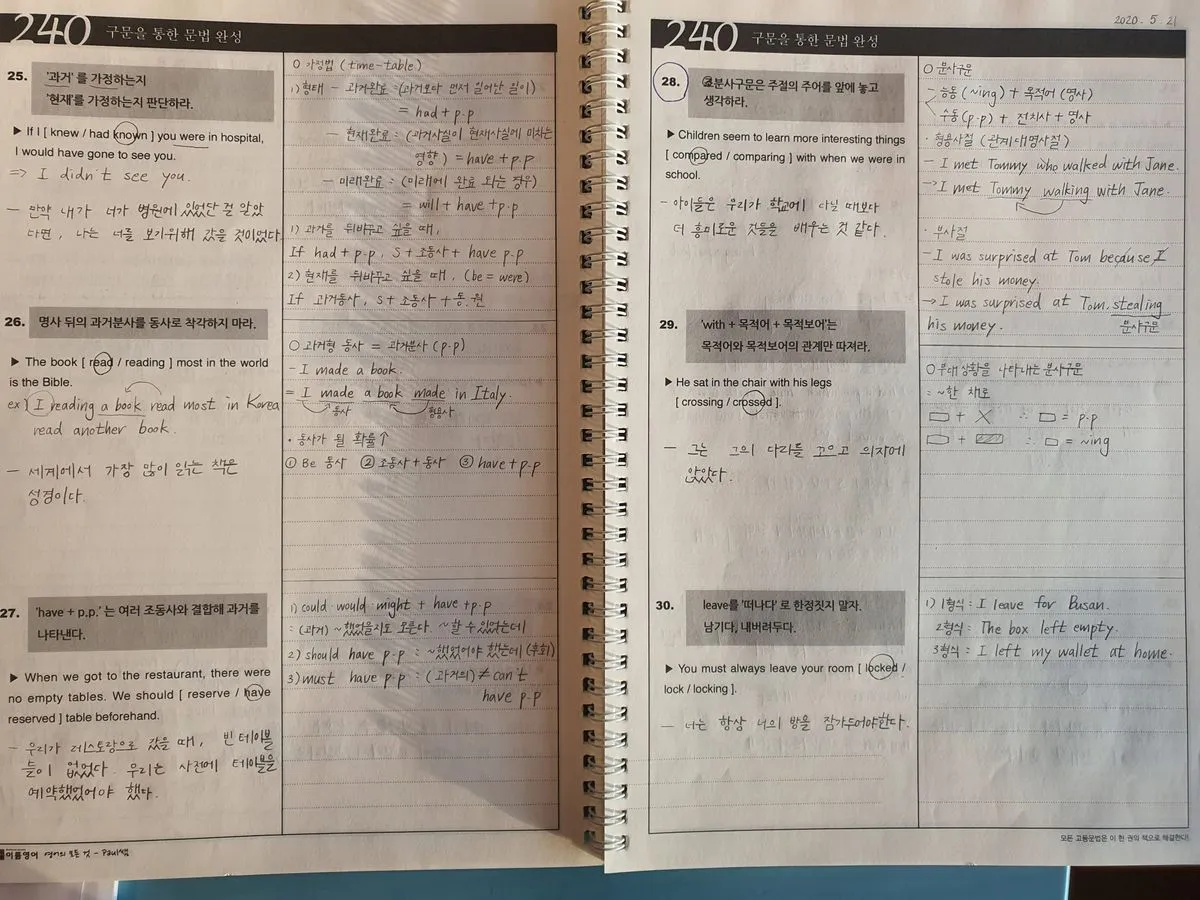 240 구문을 통한 문법 완성
25. '과거' 를 가정하는지
'현재'를 가정하는지 판단하라.
▶ If I [ knew / had known ] you were in hospital,
I would have gone to see you.
=> I didn't see you.
- 만약 내가 너가 병원에 있었단 걸 알았
다면, 나는 너를 보기위해 갔을 것이었다
O 가정법 (time-table)
1) 형태 - 과거완료 : (과거보다 먼저 일어난 일이)
= had + p.p
- 현재완료 : (과거사실이 현재사실에 미치는
영향) = have + p.p
- 미래완료 : (미래에 완료 되는 경우)
= will + have + p.p
1) 과거를 뒤바꾸고 싶을 때,
If had + p.p, S + 조동사 + have p.p
2) 현재를 뒤바꾸고 싶을 때, (be = were)
If 과거동사, S + 조동사 + 동.원
26. 명사 뒤의 과거분사를 동사로 착각하지 마라.
▶ The book [ read / reading ] most in the world
is the Bible.
ex) I reading a book read most in Korea
read another book.
- 세계에서 가장 많이 읽는 책은
성경이다.
O 과거형 동사 = 과거분사 (p.p)
- I made a book.
= I made a book made in Italy.
동사 형용사
• 동사가 될 확률↑
① Be 동사 ② 조동사 + 동사 ③ have + p.p
27. 'have + p.p.' 는 여러 조동사와 결합해 과거를
나타낸다.
▶ When we got to the restaurant, there were
no empty tables. We should [ reserve / have
reserved ] table beforehand.
- 우리가 레스토랑으로 갔을 때, 빈 테이블
들이 없었다. 우리는 사전에 테이블을
예약했었어야 했다.
1) could would might + have + p.p
: (과거) ~했었을지도 모른다. ~할 수 있었는데
2) should have p.p : ~했었어야 했는데 (후회)
3) must have p.p : (과거의) ≠ can't
have p.p
이름영어 영어의 모든 것 - Paul쌤
2020. 5. 21
240 구문을 통한 문법 완성
28. 분사구문은 주절의 주어를 앞에 놓고
생각하라.
▶ Children seem to learn more interesting things
[ compared / comparing ] with when we were in
school.
- 아이들은 우리가 학교에 다닐 때보다
더 흥미로운 것들을 배우는 것 같다.
O 분사구문
- 능동 (~ing) + 목적어 (명사)
수동 (p.p) + 전치사 + 명사
· 형용사절 (관계대명사절)
- I met Tommy who walked with Jane.
-> I met Tommy walking with Jane.
· 부사절
- I was surprised at Tom because I
stole his money.
-> I was surprised at Tom, stealing
his money. 분사구문
29. 'with + 목적어 + 목적보어'는
목적어와 목적보어의 관계만 따져라.
▶ He sat in the chair with his legs
[ crossing / crossed ].
- 그는 그의 다리를 꼬으고 의자에
앉았다.
O 부대 상황을 나타내는 분사구문
: ~한 채로
▭ + X ∴ ▭ = p.p
▭ + ▨ ∴ ▭ = ~ing
30. leave를 '떠나다' 로 한정짓지 말자.
남기다, 내버려두다.
▶ You must always leave your room [ locked /
lock / locking ].
- 너는 항상 너의 방을 잠가두어야한다.
1) 1형식 : I leave for Busan.
2형식 : The box left empty.
3형식 : I left my wallet at home.
모든 고등문법은 이 한 권의 책으로 해결한다!